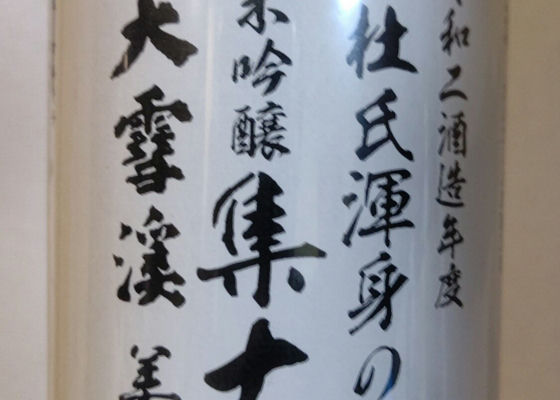 和二酒造年度
杜氏渾身の
吟醸集
大雪渓